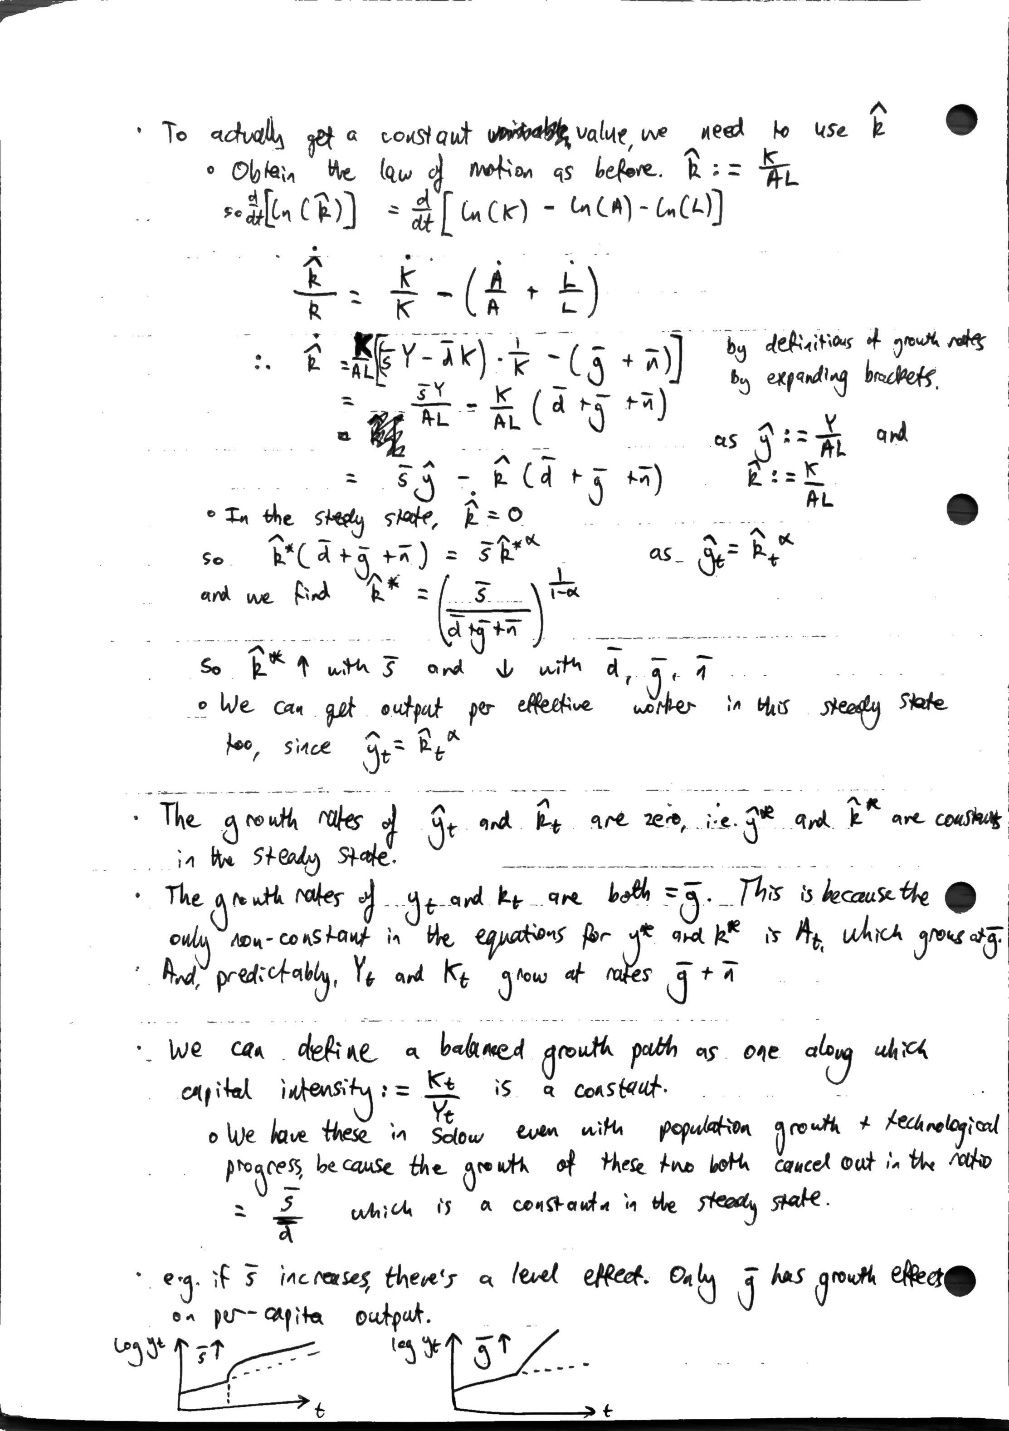 · To actually get a constant value, we need to use k̂
∘ Obtain the law of motion as before. k̂ := K/AL
so d/dt[ln(k̂)] = d/dt[ln(K) - ln(A) - ln(L)]
k̂̇/k = K̇/K - (Ȧ/A + L̇/L)
∴ k̂̇ = K/AL[(s̄Y - d̄K)·1/K - (ḡ + n̄)] by definitions of growth rates
= s̄Y/AL - K/AL (d̄ + ḡ + n̄) by expanding brackets.
= s̄ŷ - k̂(d̄ + ḡ + n̄) as ŷ := Y/AL and k̂ := K/AL
∘ In the steady state, k̂̇ = 0
so k̂*(d̄ + ḡ + n̄) = s̄k̂*^α as ŷₜ = k̂ₜ^α
and we find k̂* = (s̄/(d̄+ḡ+n̄))^(1/(1-α))
So k̂* ↑ with s̄ and ↓ with d̄, ḡ, n̄
∘ We can get output per effective worker in this steady state
too, since ŷₜ = k̂ₜ^α
· The growth rates of ŷₜ and k̂ₜ are zero, i.e. ŷ* and k̂* are constants
in the steady state.
· The growth rates of yₜ and kₜ are both = ḡ. This is because the
only non-constant in the equations for y* and k* is Aₜ, which grows at ḡ.
· And, predictably, Yₜ and Kₜ grow at rates ḡ + n̄
· We can define a balanced growth path as one along which
capital intensity := Kₜ/Yₜ is a constant.
∘ We have these in Solow even with population growth + technological
progress, because the growth of these two both cancel out in the ratio
= s̄/d̄ which is a constant in the steady state.
· e.g. if s̄ increases, there's a level effect. Only ḡ has growth effects
on per-capita output.
log yₜ s̄↑ t
log yₜ ḡ↑ t